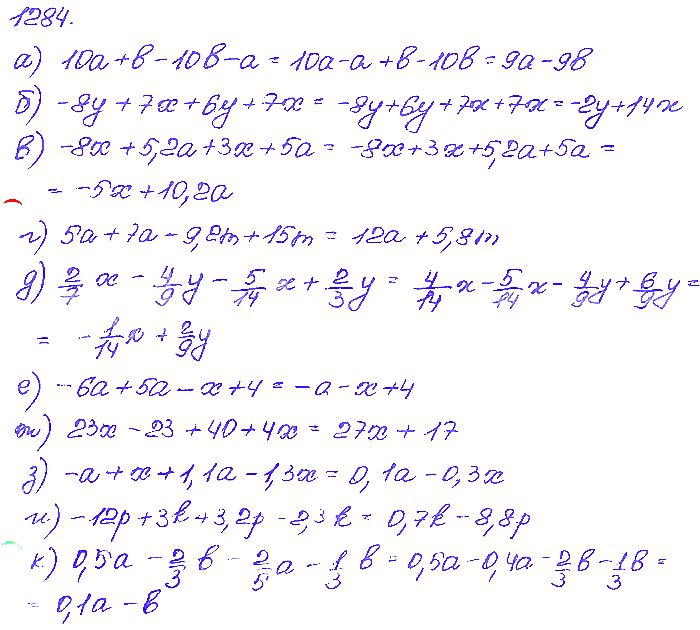 1284.
а) 10a + b - 10b - a = 10a - a + b - 10b = 9a - 9b
б) -8y + 7x + 6y + 7x = -8y + 6y + 7x + 7x = -2y + 14x
в) -8x + 5,2a + 3x + 5a = -8x + 3x + 5,2a + 5a =
= -5x + 10,2a
г) 5a + 7a - 9,2m + 15m = 12a + 5,8m
д) 2/7 x - 4/9 y - 5/14 x + 2/3 y = 4/14 x - 5/14 x - 4/9 y + 6/9 y =
= -1/14 x + 2/9 y
е) -6a + 5a - x + 4 = -a - x + 4
ж) 23x - 23 + 40 + 4x = 27x + 17
з) -a + x + 1,1a - 1,3x = 0,1a - 0,3x
и) -12p + 3k + 3,2p - 2,3k = 0,7k - 8,8p
к) 0,5a - 2/3 b - 2/5 a - 1/3 b = 0,5a - 0,4a - 2/3 b - 1/3 b =
= 0,1a - b